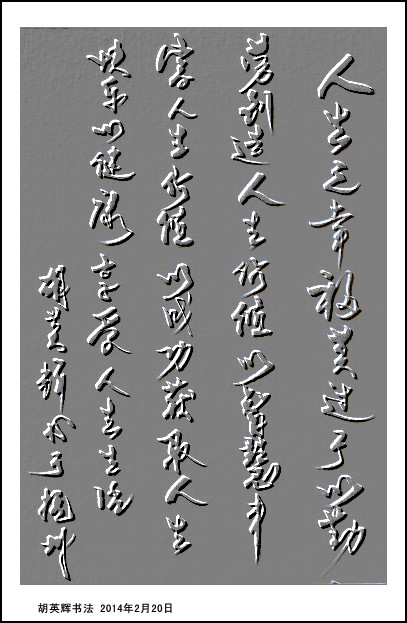 人生之幸福莫过于以勤
劳创造人生价值以智慧丰
富人生价值以成功获取人生
快乐以健康享受人生生活
胡英辉书于扬州
胡英辉书法 2014年2月20日